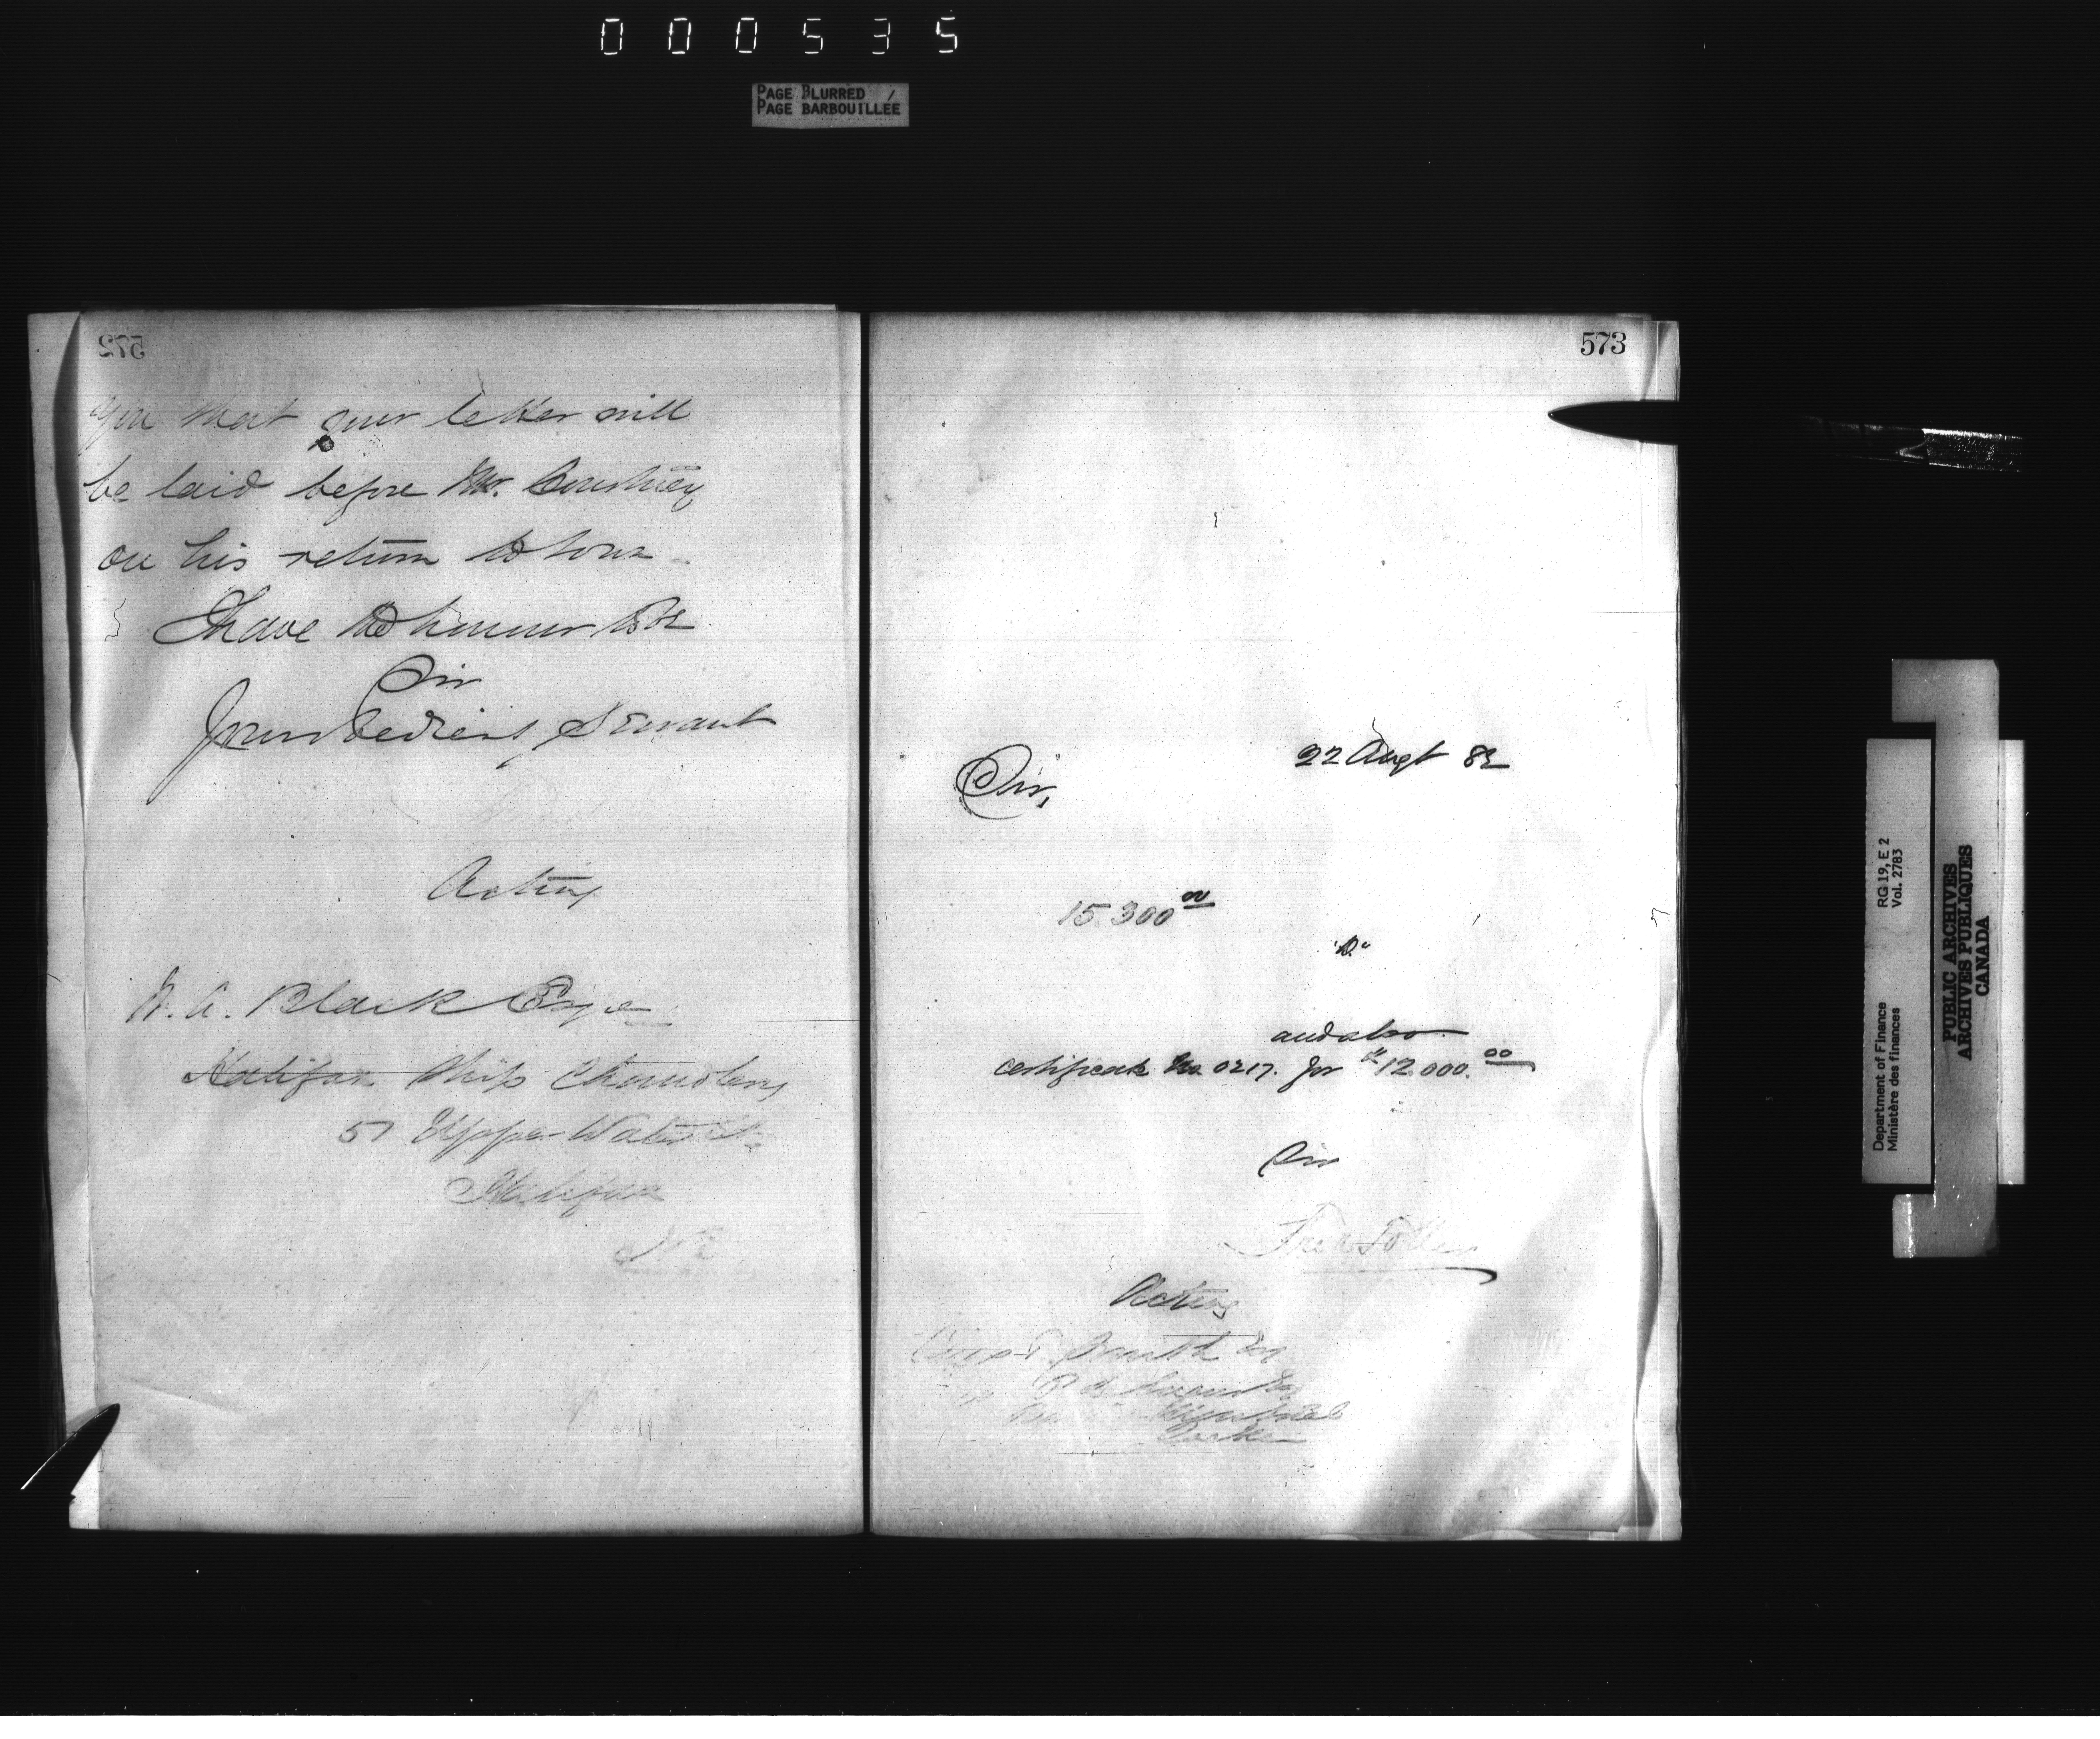 000535
PAGE BLURRED
PAGE BARBOUILLÉE
572
you that your letter will
be laid before Mr. Courtney
on his return to town
I have the honour to be
Sir
Your obedient Servant
Acting
W. A. Black Esqre
Halifax Ship Chandlery
57 Upper Water St
Halifax
N.S.
573
22 Augt 82
Sir,
15.300 00
and also
certificate No. 0217. for $12.000. 00
Sir
Fred Toller
Acting
Smith Esq
RG 19, E 2
Vol. 2783
Department of Finance
Ministère des finances
PUBLIC ARCHIVES
ARCHIVES PUBLIQUES
CANADA